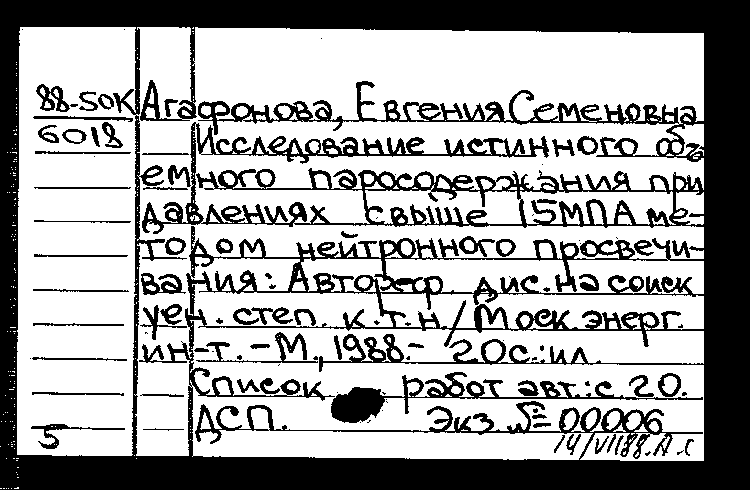 88-50К Агафонова, Евгения Семеновна
6018 Исследование истинного объ
емного паросодержания при
давлениях свыше 15МПА ме-
тодом нейтронного просвечи-
вания: Автореф. дис. на соиск
уен. степ. к.т.н./Моск. энерг.
ин-т. - М., 1988.- 20с.:ил.
Список работ авт.: с. 20.
ДСП. Экз. №= 00006
5 14/VII88. А.С